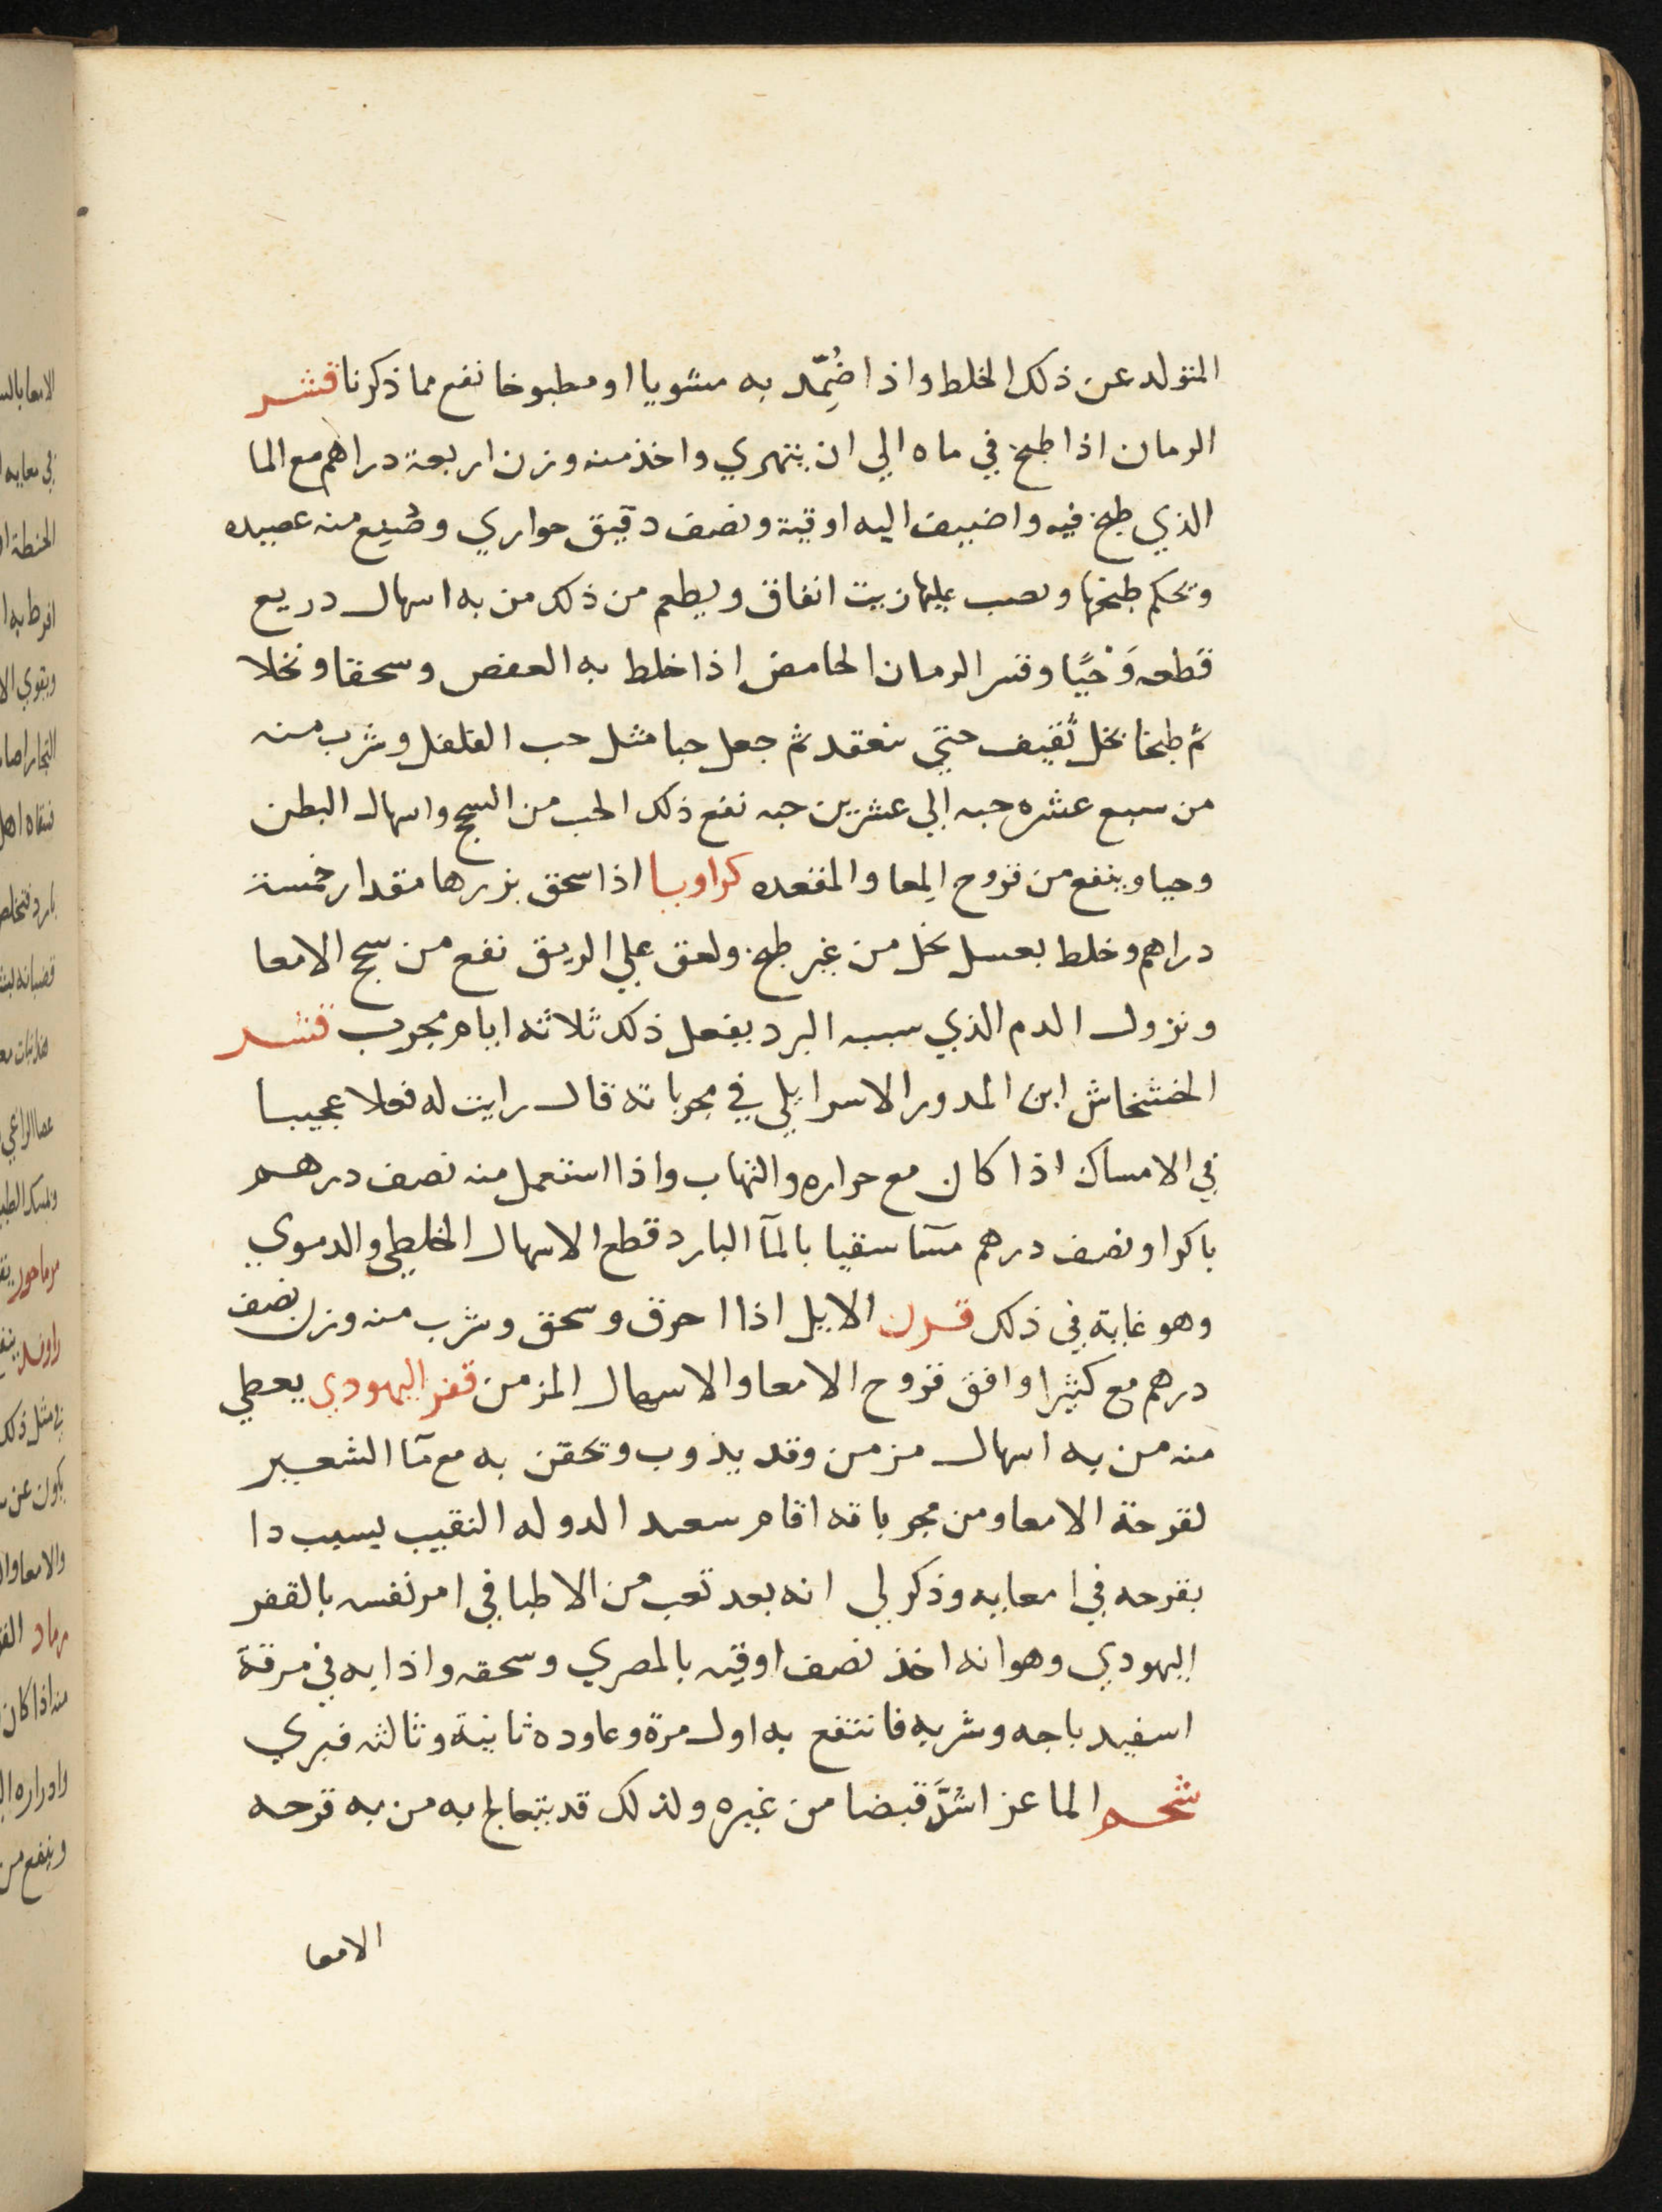 المتولد عن ذلك الخلط واذا ضُمِّد به مشويا او مطبوخا نفع مما ذكرنا قشر
الرمان اذا طبخ في ماه الي ان يتهري واخذ منه وزن اربعة دراهم مع الما
الذي طبخ فيه واضيف اليه اوقية ونصف دقيق حواري وصُنِع منه عصيده
وتحكم طبخها وتصب عليها زيت انفاق ويطعم من ذلك من به اسهال دريع
قطعه وَحْيًا وقشر الرمان الحامض اذا خلط به العفص وسحقا ونخلا
ثم طبخا بخل ثقيف حتي ينعقد ثم جعل حبا مثل حب الفلفل وشرب منه
من سبع عشره حبه الي عشرين حبه نفع ذلك الحب من السحج واسهال البطن
وحيا وينفع من قروح المِعا والمقعده كراويا اذا سحق بزرها مقدار خمسة
دراهم وخلط بعسل نحل من غير طبخ ولعق علي الريق نفع من سحج الامعا
ونزول الدم الذي سببه البرد يفعل ذلك ثلاثه ايام مجرب قشر
الخشخاش ابن المدور الاسراييلي في مجرباته قال رايت له فعلا عجيبا
في الامساك اذا كان مع حراره والتهاب واذا استعمل منه نصف درهم
باكرا ونصف درهم مسآ سقيا بالمآ البارد قطع الاسهال الخلطي والدموي
وهو غاية في ذلك قرن الايل اذا احرق وسحق وشرب منه وزن نصف
درهم مع كثيرا وافق قروح الامعا والاسهال المزمن قفر اليهودي يعطي
منه من به اسهال مزمن وقد يذوب وتحقن به مع مآ الشعير
لقرحة الامعا ومن مجرباته اقام سعيد الدوله النقيب يسيب دا
بقرحه في امعايه وذكر لي انه بعد تعب من الاطبا في امر نفسه بالقفر
اليهودي وهو انه اخذ نصف اوقيه بالمصري وسحقه واذابه في مرقة
اسفيدباجه وشربه فانتفع به اول مرة وعاوده ثانية وثالثه فبري
شحم الماعز اشَدّ قبضا من غيره ولذلك قد يتعالج به من به قرحه
الامعا